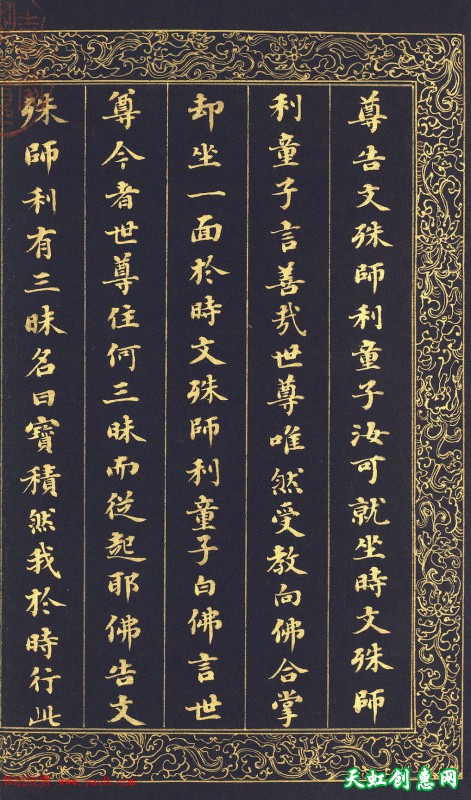 尊告文殊師利童子汝可就坐時文殊師
利童子言善哉世尊唯然受教向佛合掌
却坐一面於時文殊師利童子白佛言世
尊今者世尊住何三昧而從起耶佛告文
殊師利有三昧名曰寶積然我於時行此
天虹创惠网